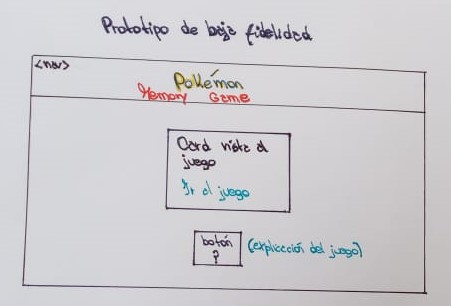 Prototipo de baja fidelidad
<nav>
Pokémon
Memory Game
Card vista al
juego
Ir al juego
botón
?
(explicación del juego)